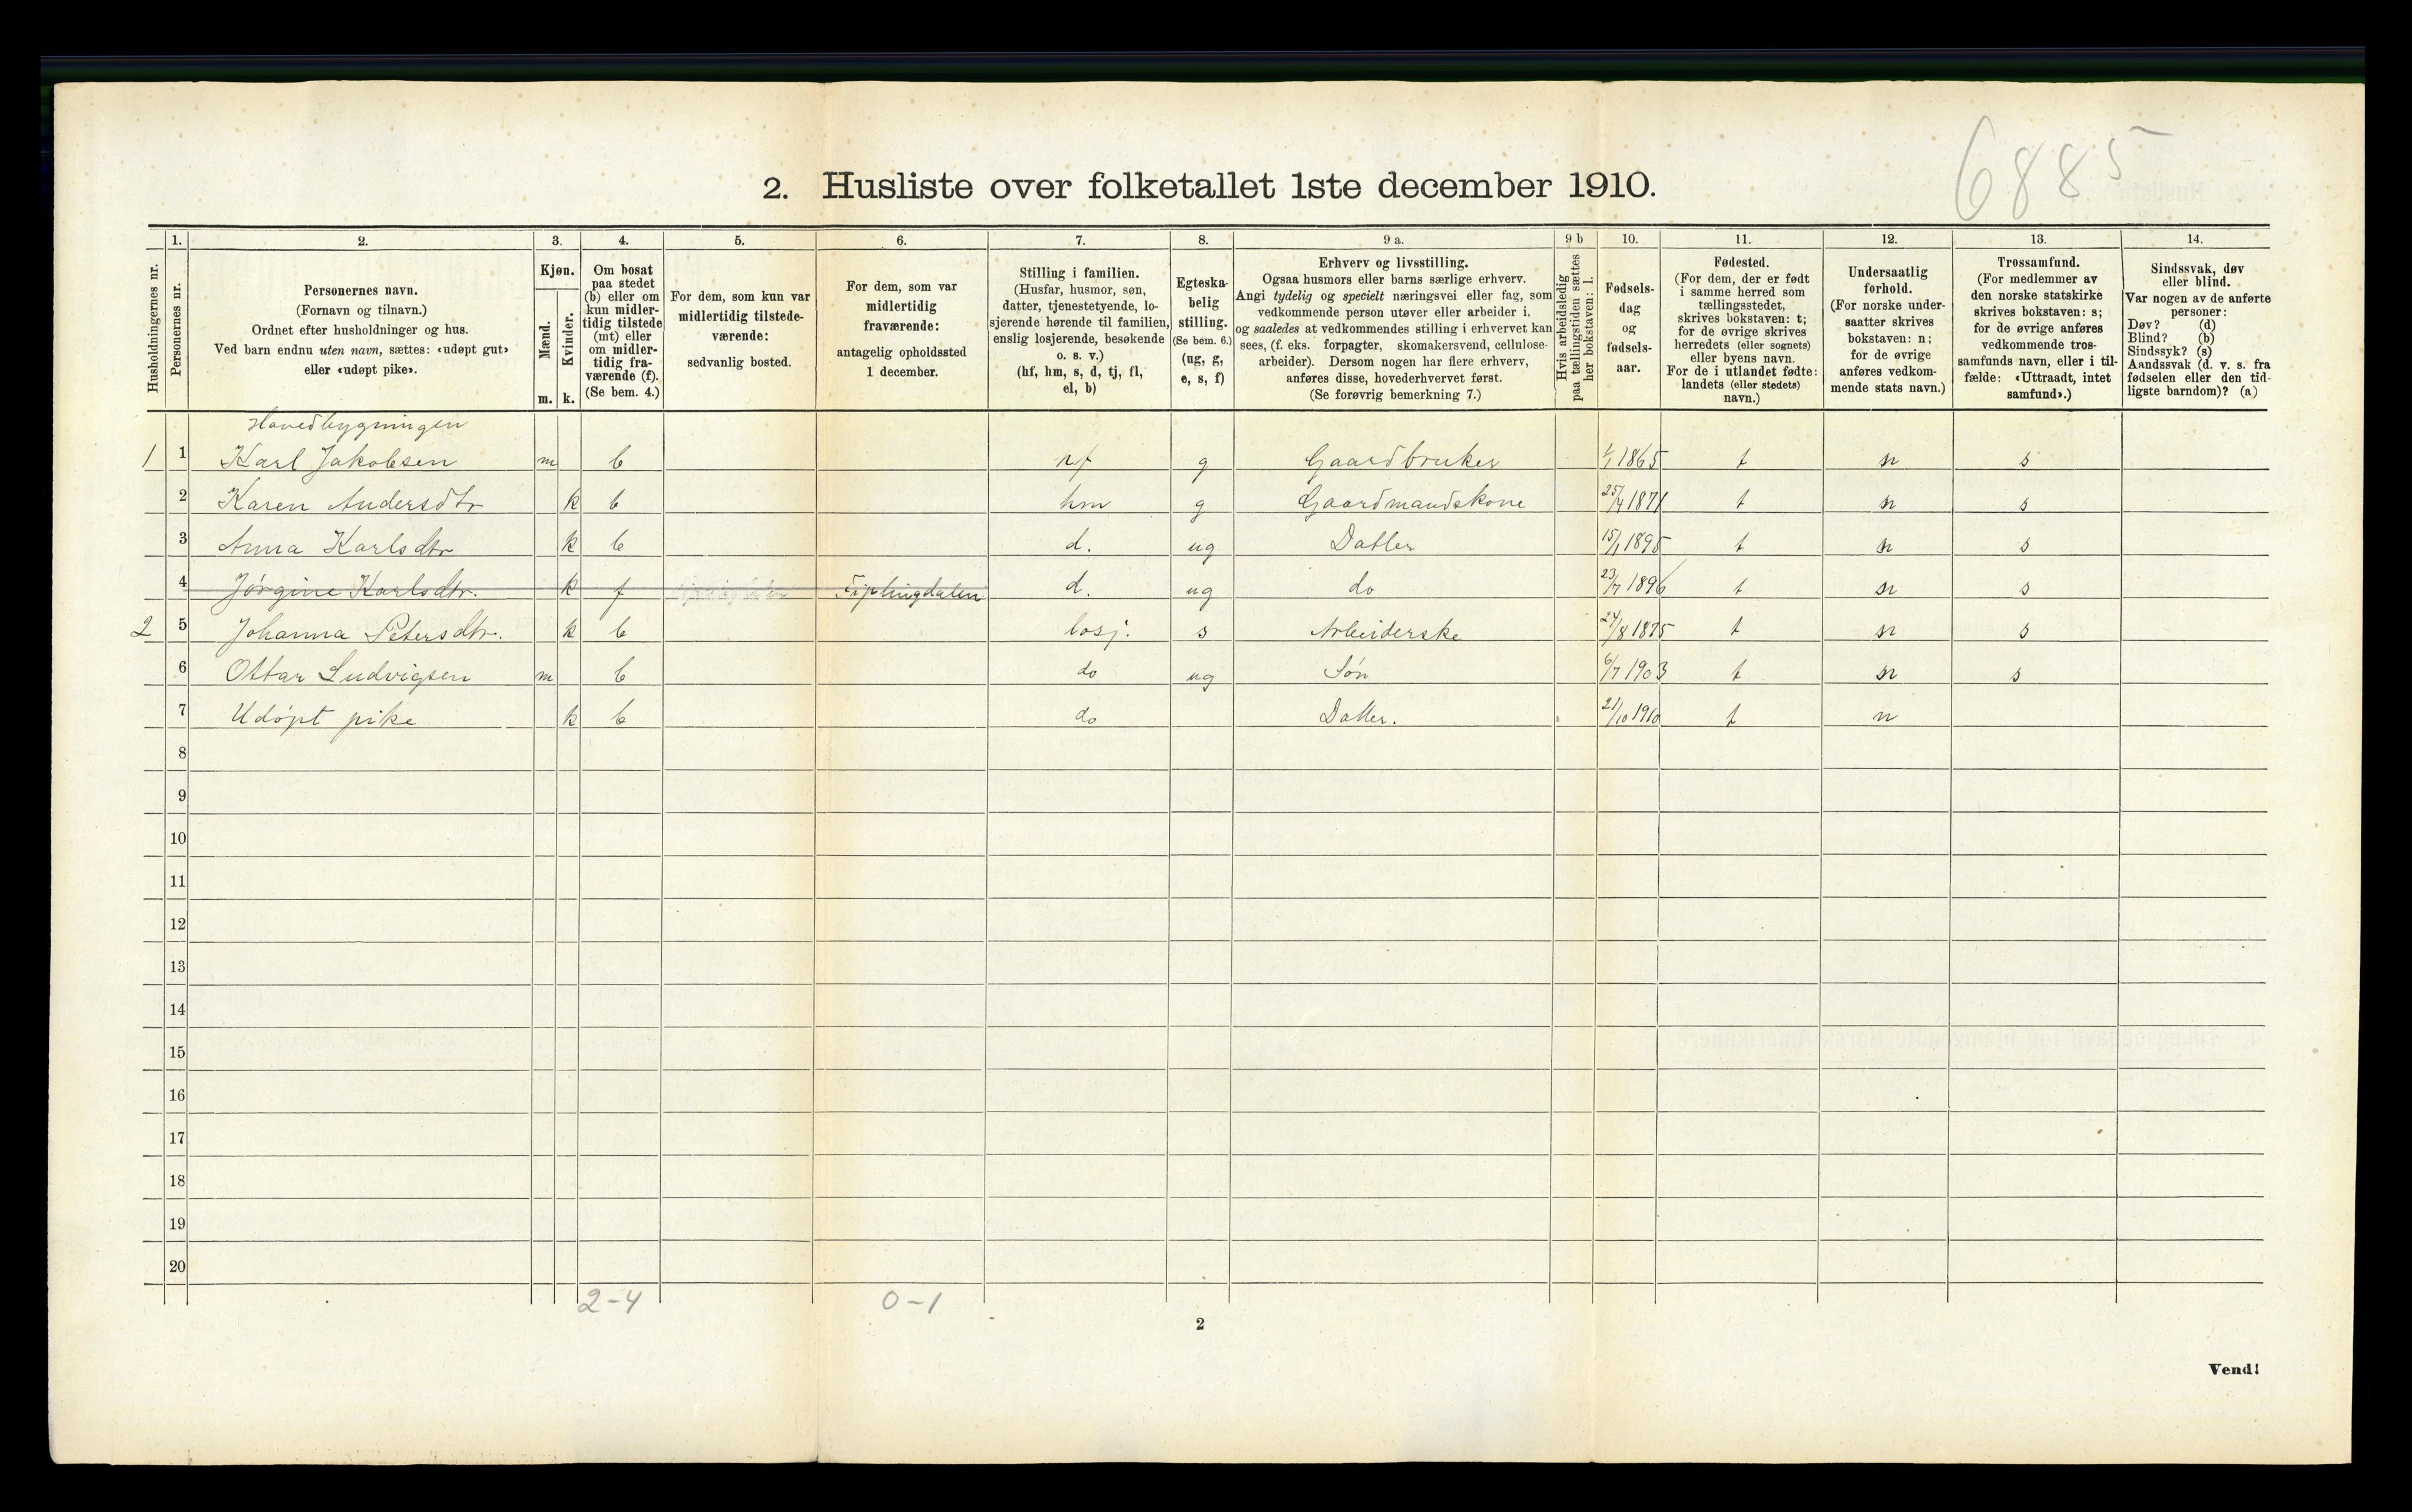 6885
2. Husliste over folketallet 1ste december 1910.
Husholdningernes nr.
1.
Personernes nr.
2.
Personernes navn.
(Fornavn og tilnavn.)
Ordnet efter husholdninger og hus.
Ved barn endnu uten navn, sættes: «udøpt gut»
eller «udøpt pike».
3.
Kjøn.
Mænd.
m.
Kvinder.
k.
4.
Om bosat
paa stedet
(b) eller om
kun midler-
tidig tilstede
(mt) eller
om midler-
tidig fra-
værende (f).
(Se bem. 4.)
5.
For dem, som kun var
midlertidig tilstede-
værende:
sedvanlig bosted.
6.
For dem, som var
midlertidig
fraværende:
antagelig opholdssted
1 december.
7.
Stilling i familien.
(Husfar, husmor, søn,
datter, tjenestetyende, lo-
sjerende hørende til familien,
enslig losjerende, besøkende
o. s. v.)
(hf, hm, s, d, tj, fl,
el, b)
8.
Egteska-
belig
stilling.
(Se bem. 6.)
(ug, g,
e, s, f)
9 a.
Erhverv og livsstilling.
Ogsaa husmors eller barns særlige erhverv.
Angi tydelig og specielt næringsvei eller fag, som
vedkommende person utøver eller arbeider i,
og saaledes at vedkommendes stilling i erhvervet kan
sees, (f. eks. forpagter, skomakersvend, cellulose-
arbeider). Dersom nogen har flere erhverv,
anføres disse, hovederhvervet først.
(Se forøvrig bemerkning 7.)
9 b
Hvis arbeidsledig
paa tællingstiden sættes
her bokstaven: l.
10.
Fødsels-
dag
og
fødsels-
aar.
11.
Fødested.
(For dem, der er født
i samme herred som
tællingsstedet,
skrives bokstaven: t;
for de øvrige skrives
herredets (eller sognets)
eller byens navn.
For de i utlandet fødte:
landets (eller stedets)
navn.)
12.
Undersaatlig
forhold.
(For norske under-
saatter skrives
bokstaven: n;
for de øvrige
anføres vedkom-
mende stats navn.)
13.
Trossamfund.
(For medlemmer av
den norske statskirke
skrives bokstaven: s;
for de øvrige anføres
vedkommende tros-
samfunds navn, eller i til-
fælde: «Uttraadt, intet
samfund».)
14.
Sindssvak, døv
eller blind.
Var nogen av de anførte
personer:
Døv? (d)
Blind? (b)
Sindssyk? (s)
Aandssvak (d. v. s. fra
fødselen eller den tid-
ligste barndom)? (a)
Hovedbygningen
1 1 Karl Jakobsen m b hf g Gaardbruker 1/1 1865 t n s
2 Karen Andersdtr k b hm g Gaardmandskone 25/4 1871 t n s
3 Anna Karlsdtr k b d. ug Datter 15/1 1895 t n s
4 Jørgine Karlsdtr. k f Fiplingdalen d. ug do 23/7 1896 t n s
2 5 Johanna Petersdtr. k b losj. s Arbeiderske 24/8 1875 t n s
6 Ottar Ludvigsen m b do ug Søn 6/7 1903 t n s
7 Udøpt pike k b do Datter. 21/10 1910 t n
8
9
10
11
12
13
14
15
16
17
18
19
20
2-4 0-1
2
Vend!